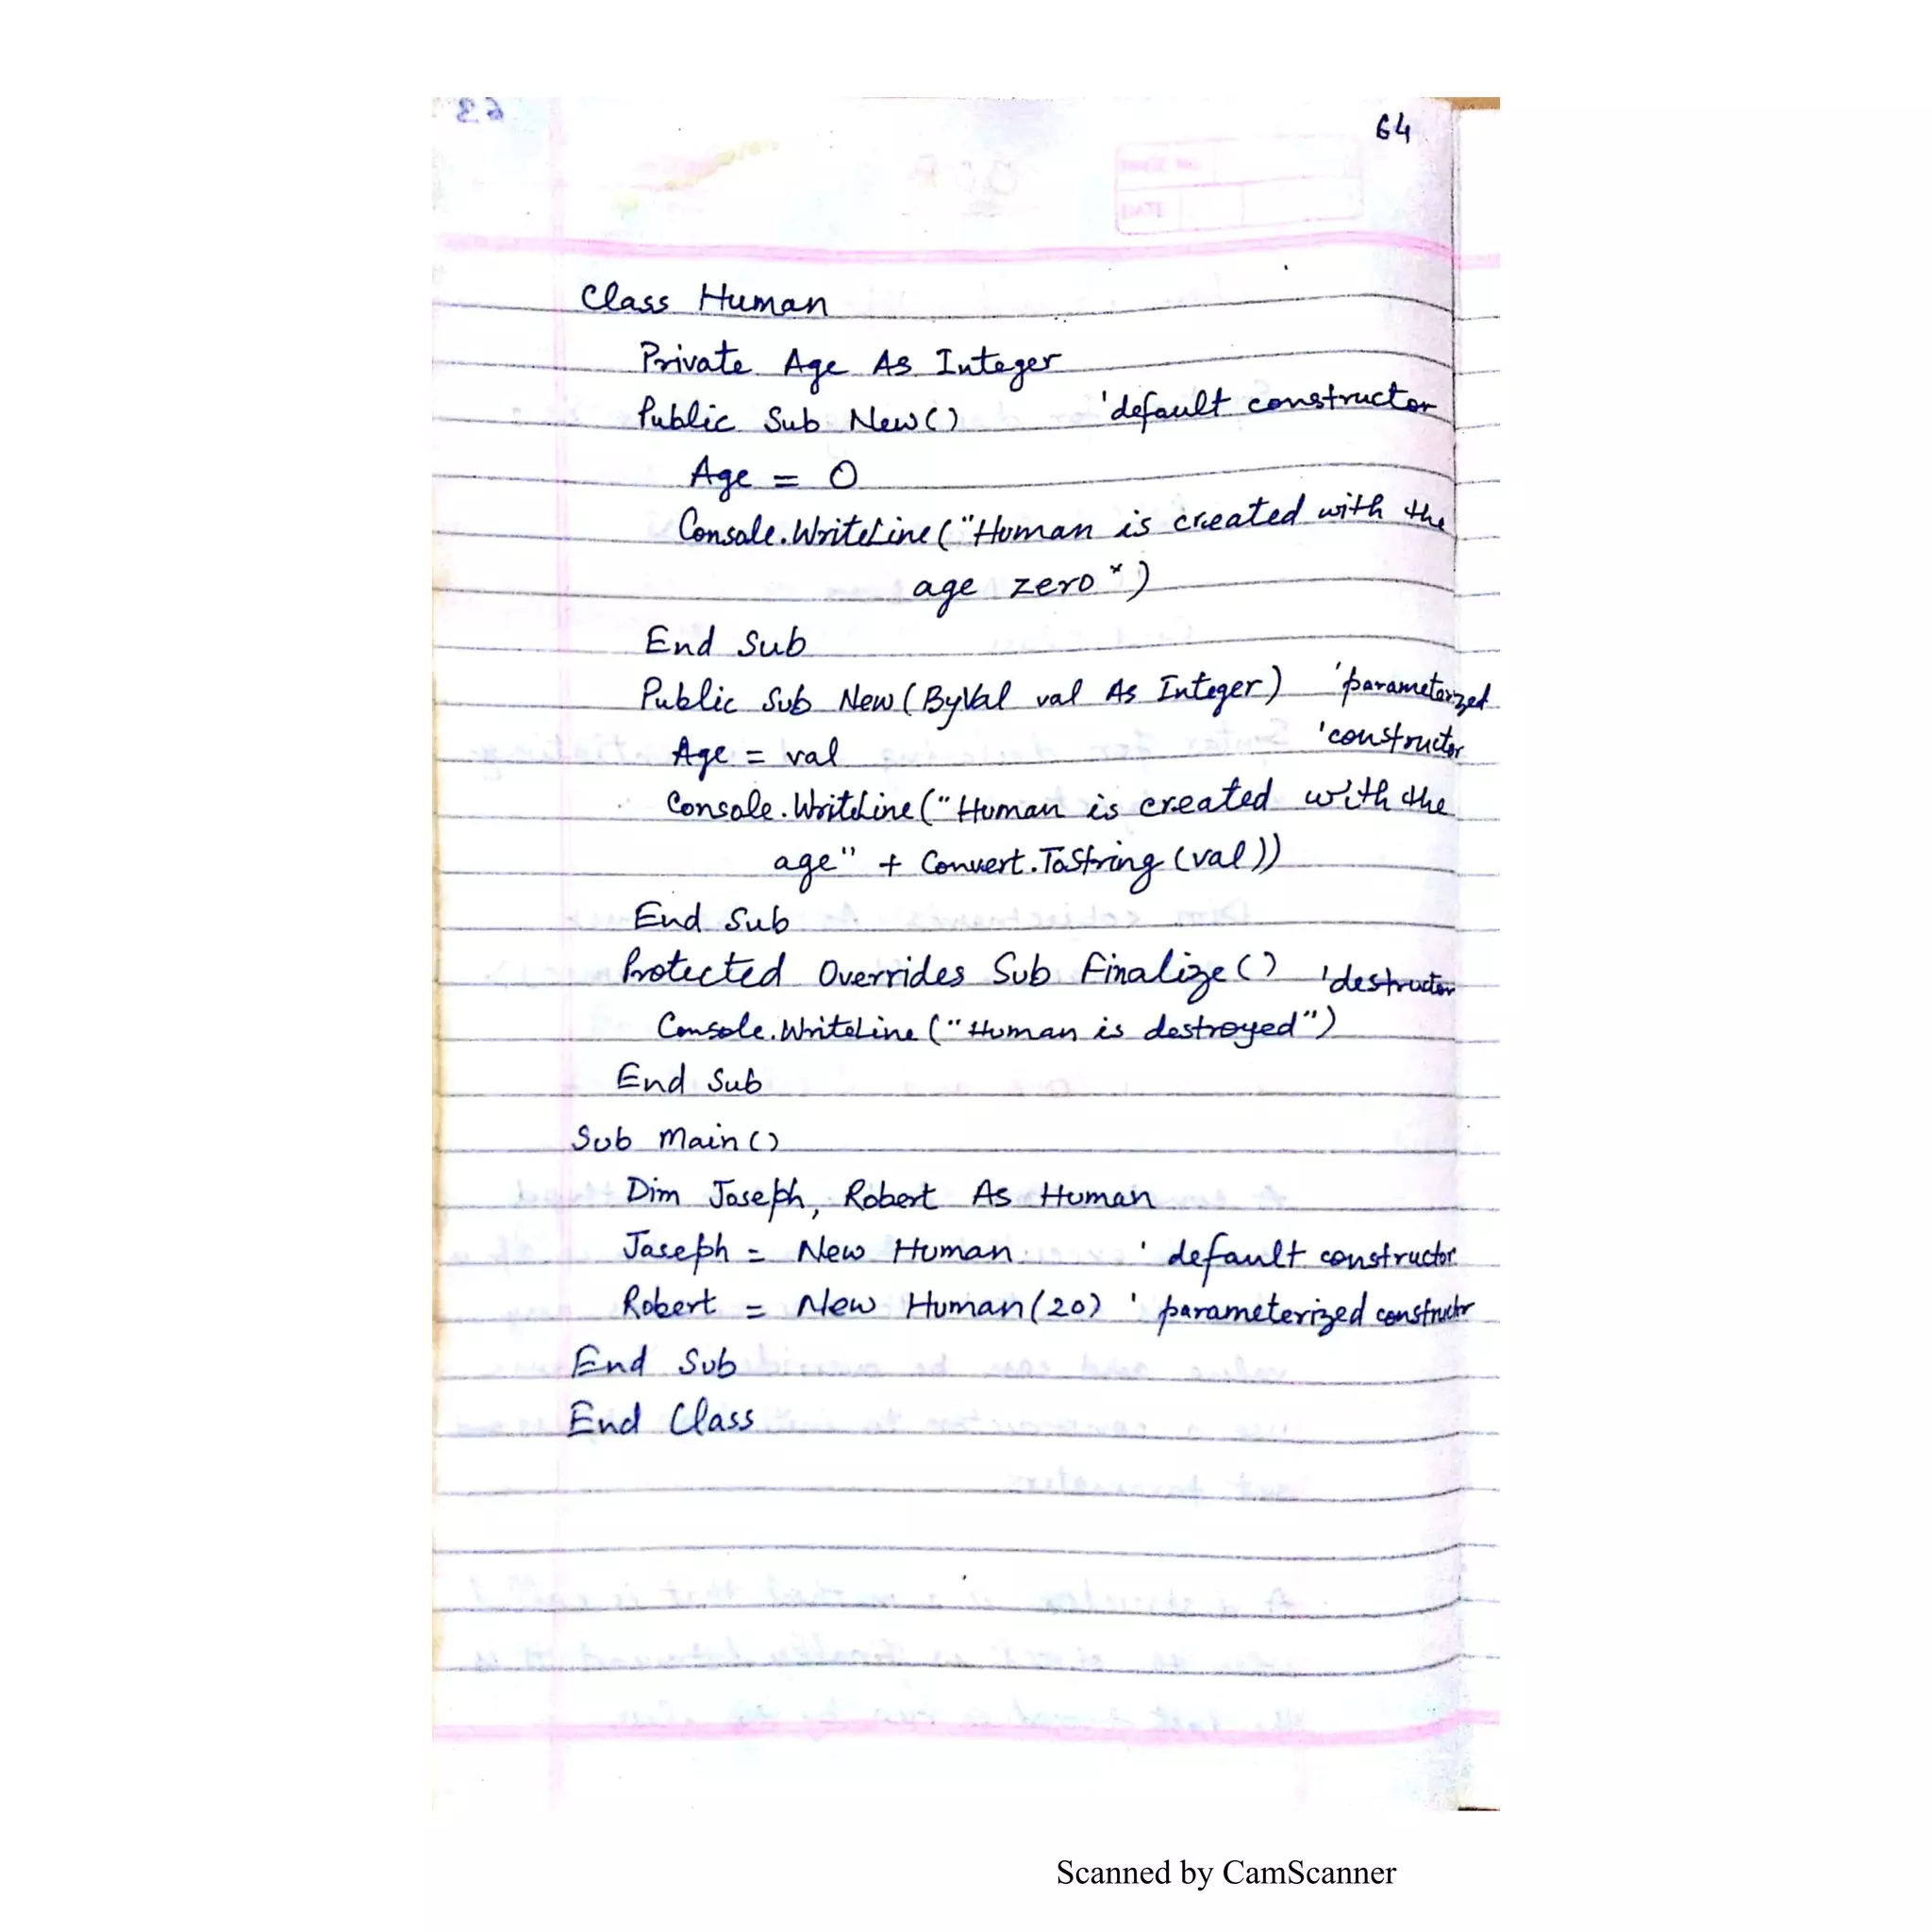 64
Class Human
Private Age As Integer
Public Sub New() 'default constructor
Age = 0
Console.WriteLine("Human is created with the
age zero")
End Sub
Public Sub New(ByVal val As Integer) 'parameterized
Age = val 'constructor
Console.WriteLine("Human is created with the
age" + Convert.ToString(val))
End Sub
Protected Overrides Sub Finalize() 'destructor
Console.WriteLine("Human is destroyed")
End Sub
Sub Main()
Dim Joseph, Robert As Human
Joseph = New Human ' default constructor
Robert = New Human(20) ' parameterized constructor
End Sub
End Class
Scanned by CamScanner